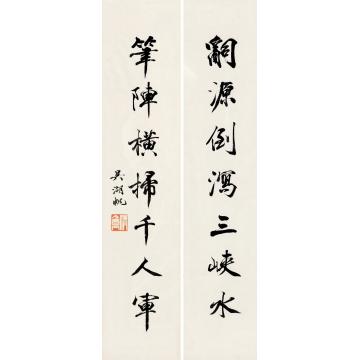 詞源倒瀉三峽水
筆陣橫掃千人軍
吳湖帆